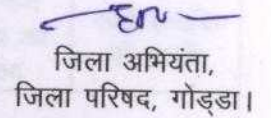 जिला अभियंता,
जिला परिषद, गोड्डा।